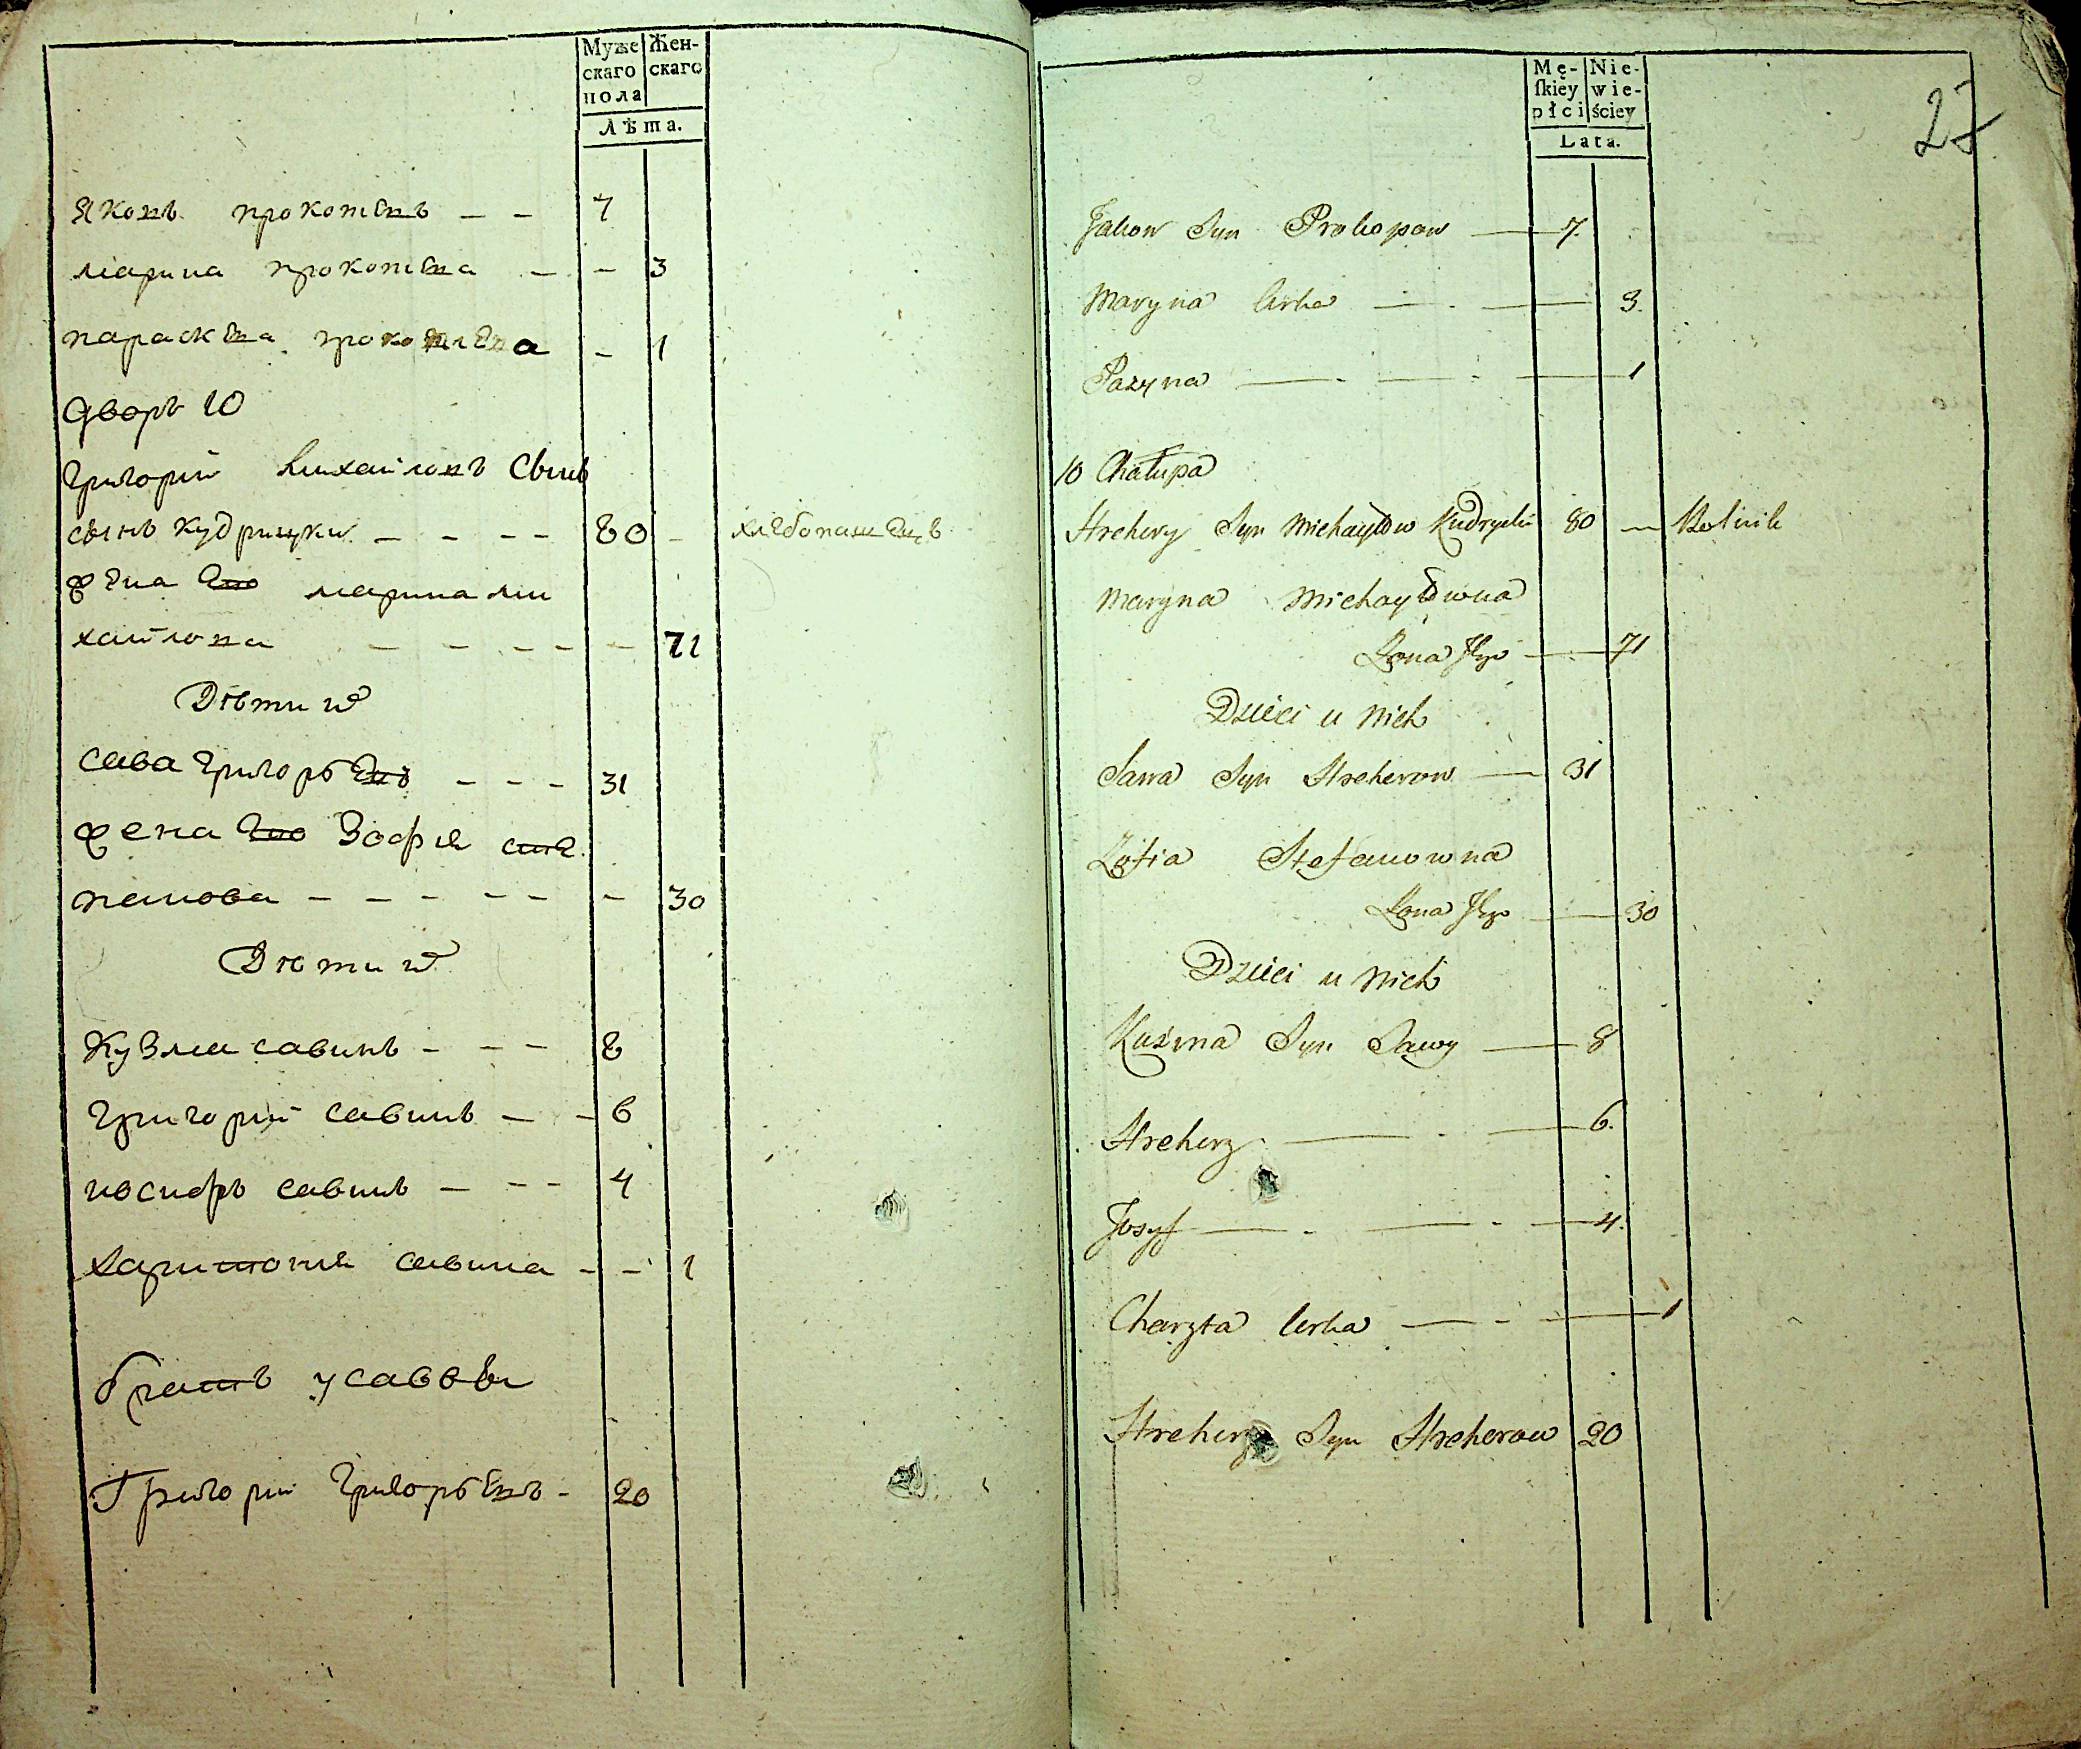 Муже Жен-
скаго скаго
пола
Лѣта.
Яковъ прокопѣвъ — — 7
марина прокопѣва — — 3
параскѣва прокопѣва — 1
дворъ 10
григорий михайловъ сынъ
сынъ кудрицки — — — — 80 — хлебопашецъ
жена его марина ми
хайлова — — — — — 71
Дѣти их
сава григорьевъ — — — 31
жена его Зофия сте
панова — — — — — — 30
Дѣти их
Кузма савинъ — — — 8
григорий савинъ — — 6
иосифъ савинъ — — — 4
харитония савина — — 1
братъ у саввы
Григорий григорьевъ — 20
Mę- Nie-
ſkiey wie-
płci ściey
Lata.
27
Jakow Syn Prokopow — 7.
Maryna Corka — . — 3.
Pazyna — . — . — 1
10 Chałupa
Hrehory Syn Michayłow Kudrycki 80 — Rolnik
Maryna Michayłowna
Żona Jego — . — 71
Dzieci u nich
Sawa Syn Hrehorow — 31
Zofia Stefanowna
Żona Jego — 30
Dzieci u nich
Kuźma Syn Sawy — 8
Hrehory — . — 6.
Josyf — . — . — 4.
Charyta Corka — . — 1
Hrehory Syn Hrehorow 20